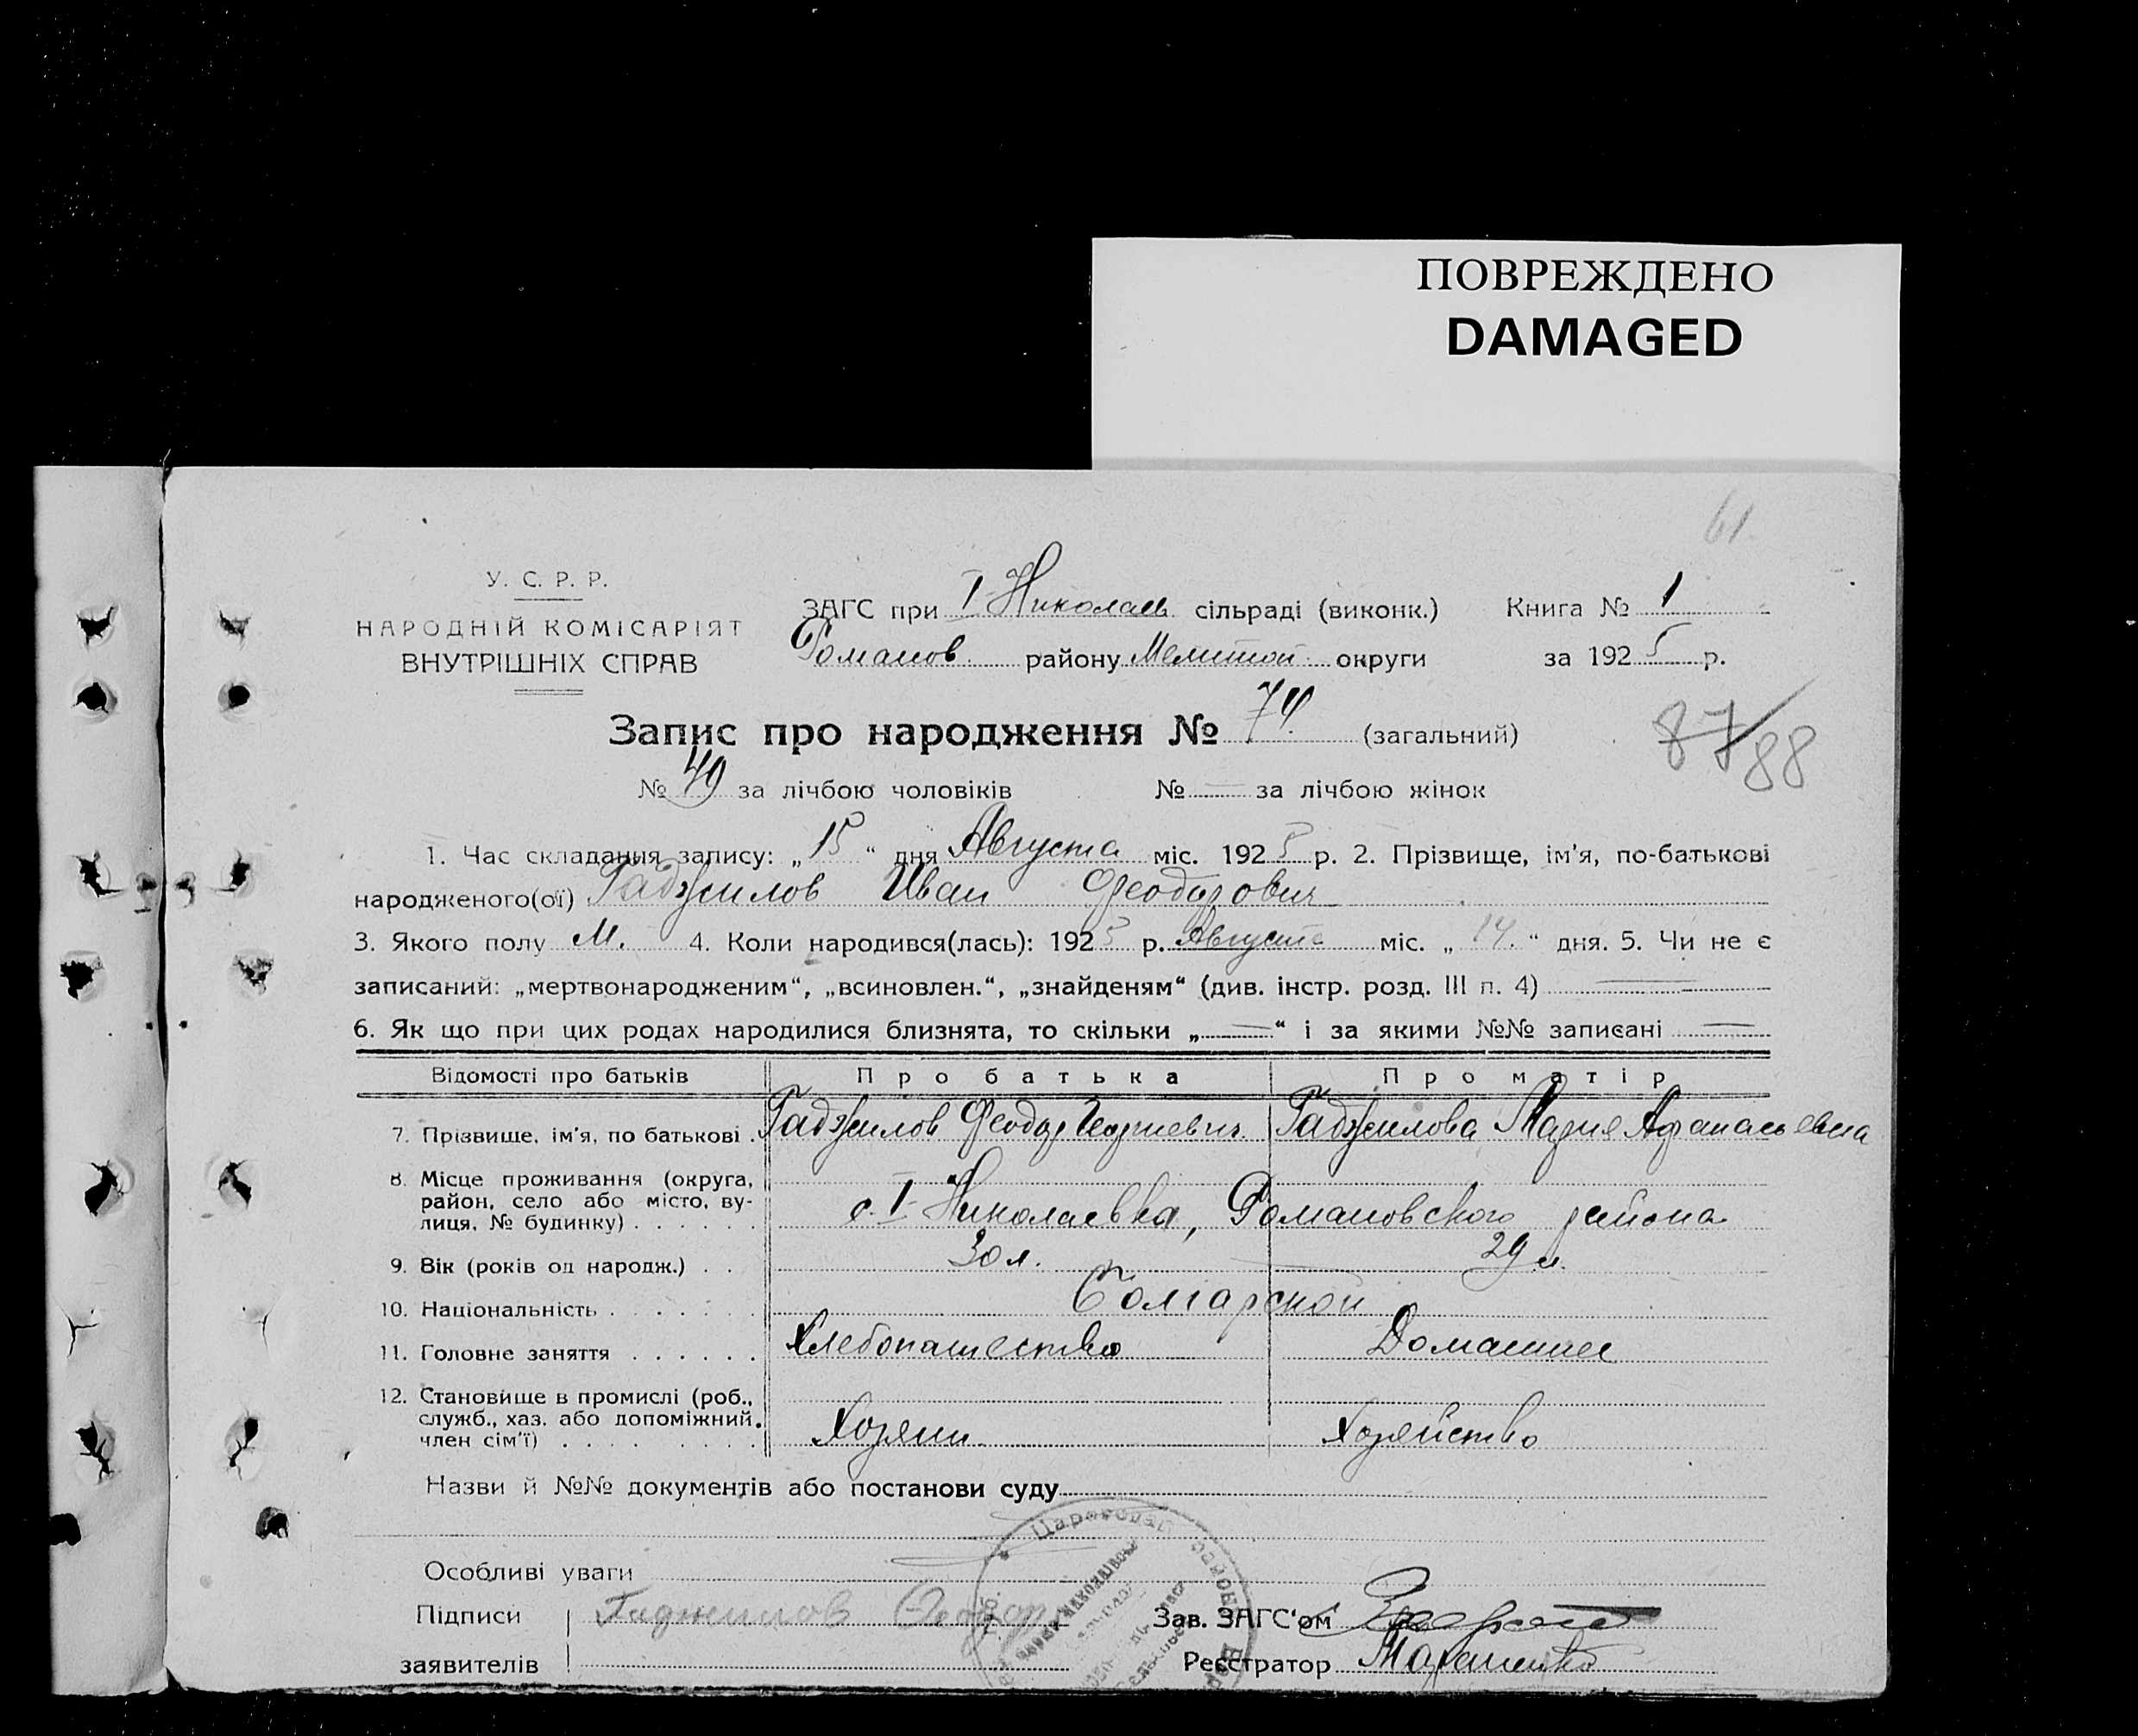 ПОВРЕЖДЕНО
DAMAGED
61.
У. С. Р. Р.
НАРОДНІЙ КОМІСАРІЯТ
ВНУТРІШНІХ СПРАВ
ЗАГС при І Николаев. сільраді (виконк.) Книга № 1
Романов. району Мелитой округи за 1925 р.
Запис про народження № 74. (загальний)
87 88
№ 49 за лічбою чоловіків № — за лічбою жінок
1. Час складання запису: „15“ дня Августа міс. 1925 р. 2. Прізвище, ім'я, по-батькові
народженого(ої) Гаджилов Иван Феодорович
3. Якого полу М. 4. Коли народився(лась): 1925 р. Августа міс. „14.“ дня. 5. Чи не є
записаний: „мертвонародженим“, „всиновлен.“, „знайденям“ (див. інстр. розд. III п. 4) —
6. Як що при цих родах народилися близнята, то скільки „—“ і за якими №№ записані —
Відомості про батьків Про батька Про матір
7. Прізвище, ім'я, по батькові . Гаджилов Феодор Георгиевич Гаджилова Мария Афанасьевна
8. Місце проживання (округа,
район, село або місто, ву-
лиця, № будинку) . . . . . . с. І Николаевка, Романовского района
9. Вік (років од народж.) . . 30 л. 29 л.
10. Національність . . . . . . Болгарской
11. Головне заняття . . . . . . Хлебопашество Домашнее
12. Становище в промислі (роб.,
служб., хаз. або допоміжний.
член сім'ї) . . . . . . . Хозяин Хозяйство
Назви й №№ документів або постанови суду
Особливі уваги
Підписи Гаджилов Феодор Зав. ЗАГС'ом
заявителів Реєстратор